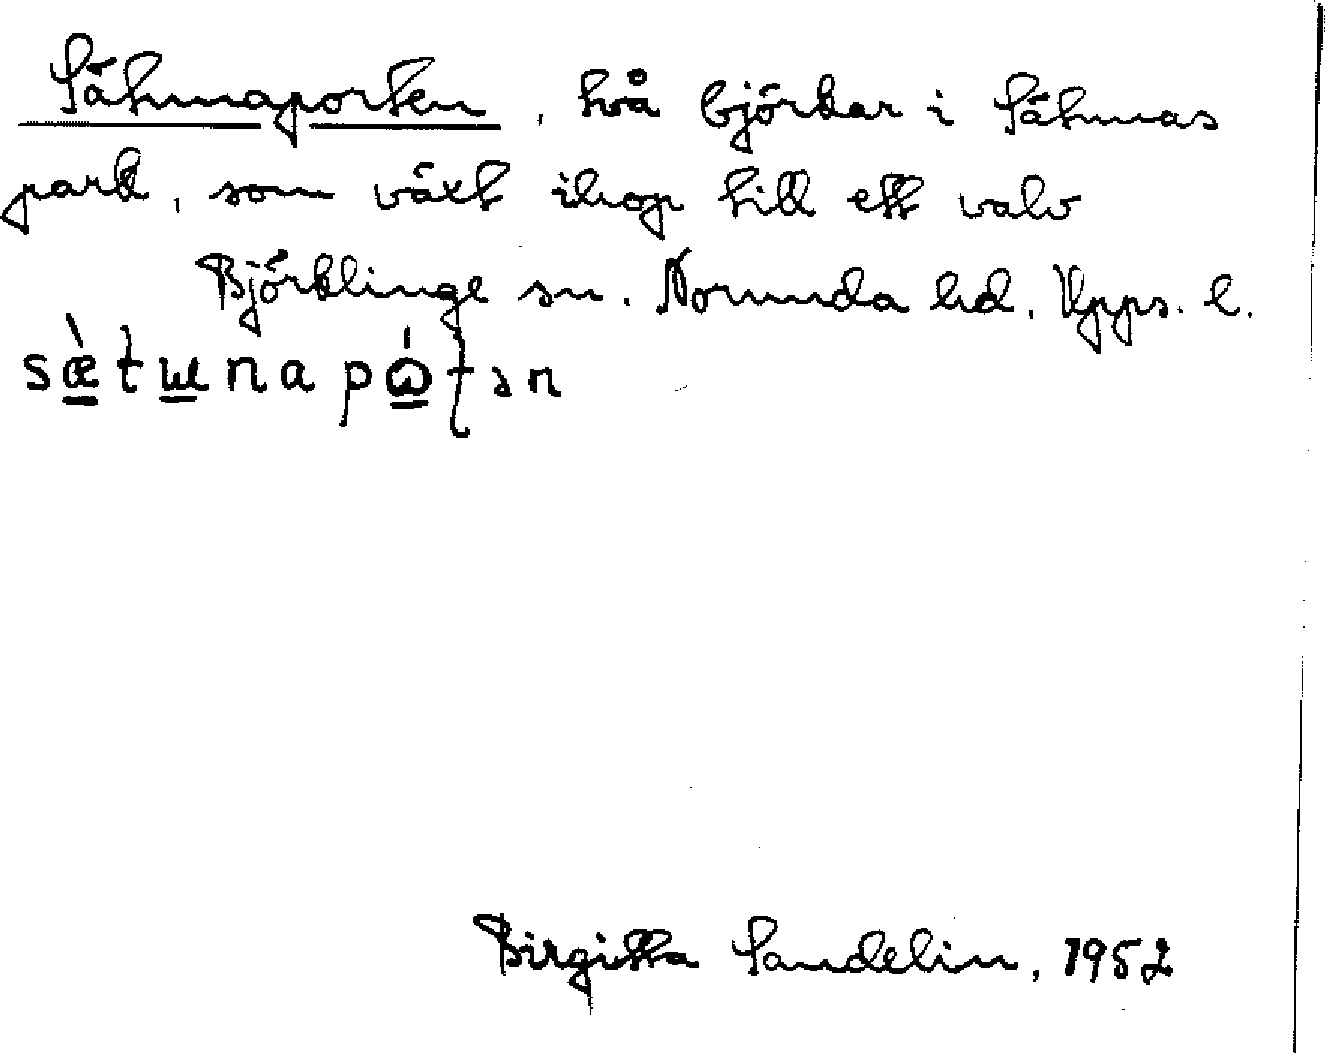 Sätunaporten, två björkar i Sätunas
park, som växt ihop till ett valv
Björklinge sn. Norunda hd, Upps. l.
Birgitta Sandelin, 1952